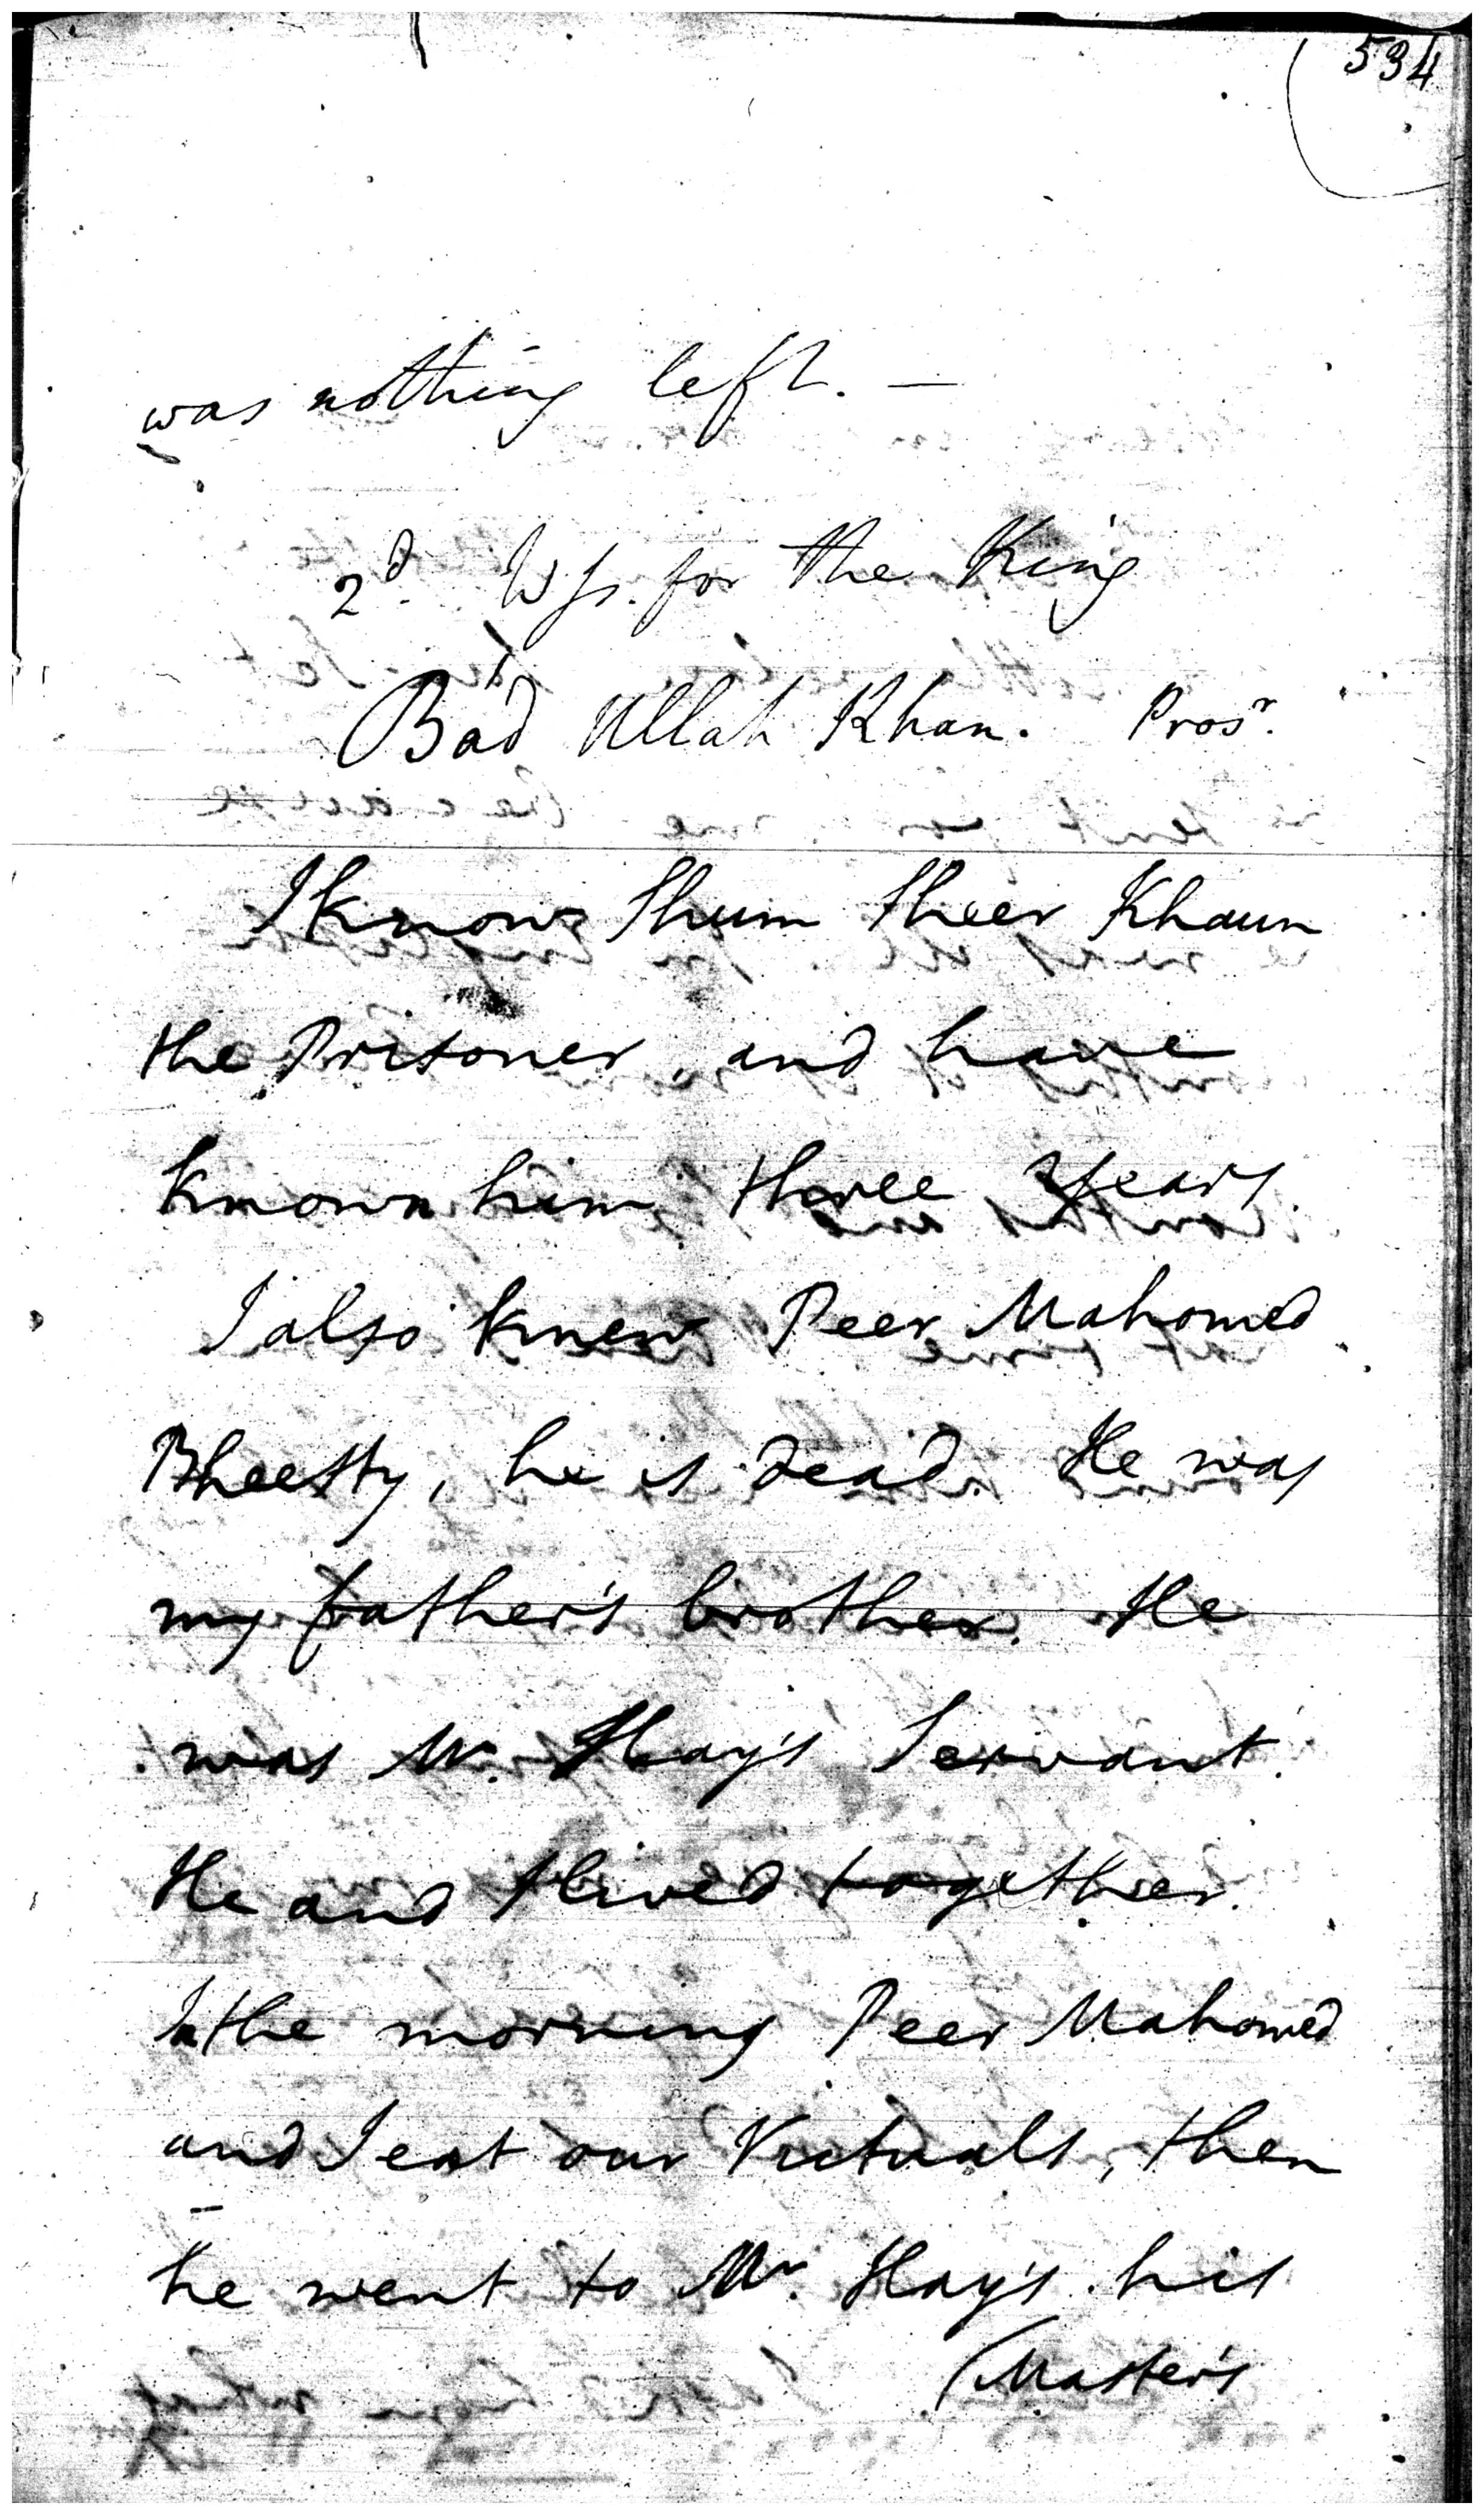 534
was nothing left. —
2d. Ws. for the King
Bad Ullah Khan. Prosr.
I know Shum Sheer Khaun
the Prisoner, and have
known him three Years.
I also knew Peer Mahomed
Bheesty, he is dead. He was
my father's brother. He
was Mr. Hay's Servant.
He and I lived together.
In the morning Peer Mahomed
and I eat our Victuals, then
he went to Mr. Hay's his
(Master's